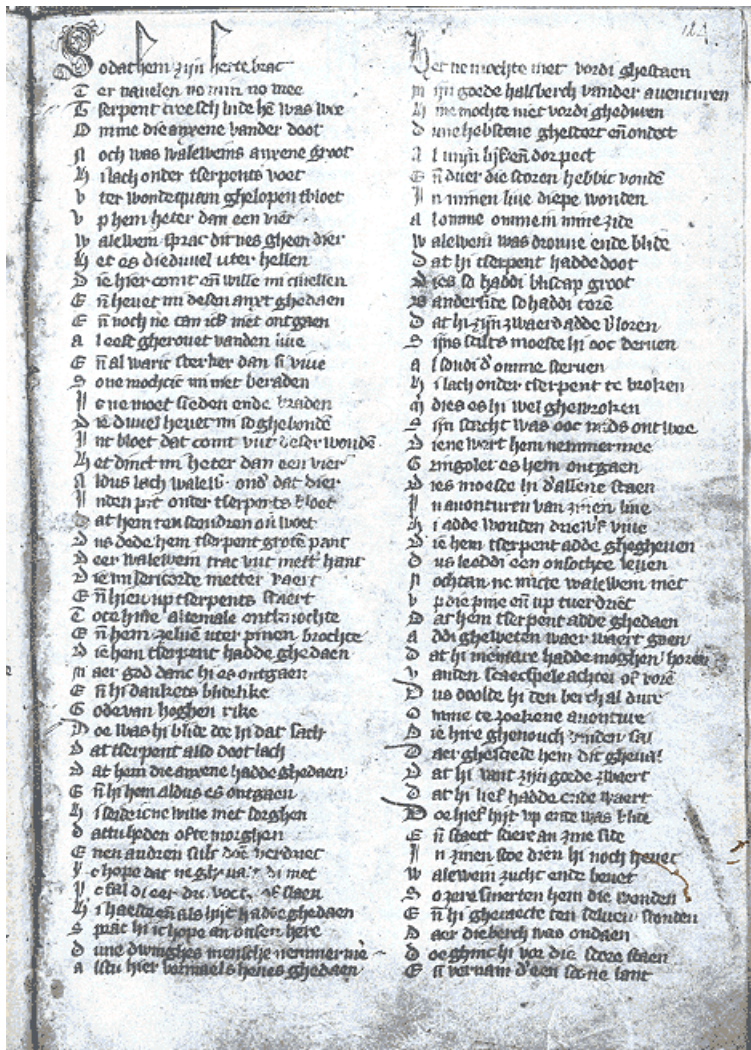 So dat hem zijn herte brac
Ter nauelen no min no mee
Tserpent creesch bide hē was wee
Omme die anxene vander doot
Noch was waleweins anxene groot
Hi lach onder tserpents voet
Vter wonde quam ghelopen tbloet
Vp hem heter dan een vier
Walewein sprac dit nes gheen dier
Het es die duuel uter hellen
Die hier comt eñ wille mi quellen
Eñ heuet mi desen anxt ghedaen
Eñ noch ne can icks niet ontgaen
Al eest gherouet vanden liue
Eñ al waric sterker dan si viue
Sone mochtic mi niet beraden
Ic ne moet sieden ende braden
Die duuel heuet mi so ghebondē
Int bloet dat comt vut deser wondē
Het dinct mi heter dan een vier
Aldus lach walew̄ ond' dat dier
Inden pit onder tserpents bloet
Dat hem ten stonden
Dus dede hem tserpent grotē pant
Deer walewein trac vut mett' hant
Die misericorde metter vaert
Eñ hieu up tserpents staert
Tote hise altemale ontcnochte
Eñ hem zeluē uter pinen brochte
Die hem tserpent hadde ghedaen
Maer god danc hi es ontgaen
Eñ hi dankets blidelike
Gode van hoghen rike
Doe was hi blide doe hi dat sach
Dat tserpent also doot lach
Dat hem die anxene hadde ghedaen
Eñ hi hem aldus es ontgaen
Hi seide icne wille niet sorghen
Dattu heden ofte morghen
Enen andren sult doē verdriet
Ic hope dat
Ic sal di eer du
Hi haestem als hijt hadde ghedaen
Sprac hi ic hope an onsen here
Dune dwinghes mensche nemmermē
Alstu hier vormaels heues ghedaen
Het ne mochte niet vordi ghestaen
Mijn goede halsberch vander auenturen
Hine mochte niet vordi gheduren
Dune hebstene ghescort eñ ontect
Al mijn lijf eñ dorpect
Eñ duer die scoren hebbic vondē
In minen liue diepe wonden
Al omme omme in mine zide
Walewein was droue ende blide
Dat hi tserpent hadde doot
Dies so haddi bliscap groot
Anderside so haddi torē
Dat hi zijn zwaerd adde v'loren
Sijns scilts moeste hi ooc deruen
Al soudi d'omme steruen
Hi lach onder tserpent te broken
Mi dies es hi wel ghewroken
Sijn scacht was ooc mids ontwee
Diene wart hem nemmermee
Gringolet es hem ontgaen
Dies moeste hi d'allene staen
In auonturen van zinen liue
Hi adde wonden vier of viue
Die hem tserpent adde ghegheuen
Dus leeddi een onsochte leuen
Nochtan ne micte walewein niet
Vp die pine eñ up tuerdriet
Dat hem tserpent adde ghedaen
Addi gheweten waer waert gaen
Dat hi meniare hadde moghen horen
Vanden scaecspele achter of vorē
Dus doolde hi den berch al dure
Omme te zoekene auonture
Die hire ghenouch vinden sal
Daer ghesciede hem dit gheual
Dat hi vant zijn goede zwaert
Dat hi lief hadde ende waert
Doe hief hijt vp ende was blide
Eñ staect sciere an zine side
In zinen scoe dien hi noch heuet
Walewein zucht ende beuet
So zere smerten hem die wonden
Eñ hi gheraecte ten seluen stonden
Daer die berch was ondaen
Doe ghinc hi vor die score staen
Eñ vernam d'een scone lant